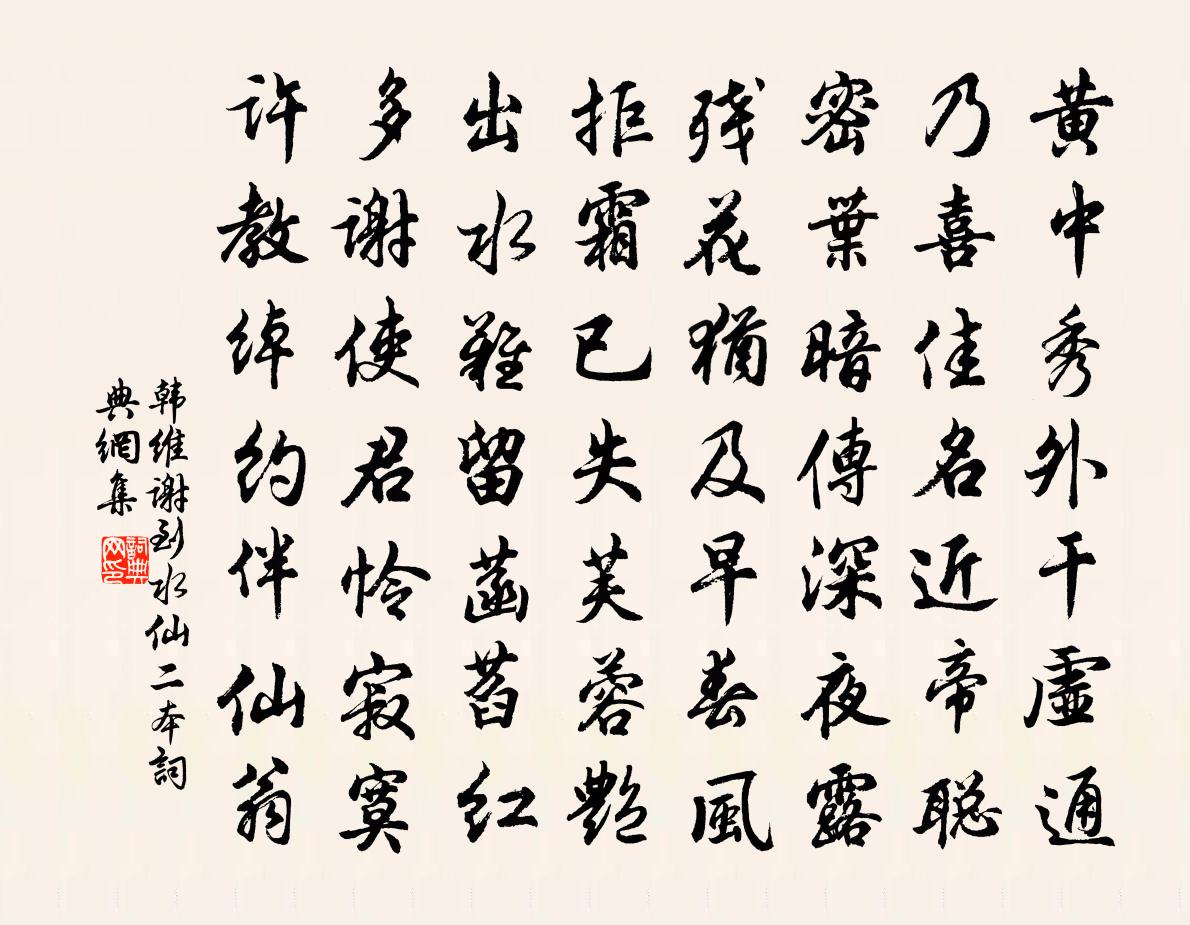 黄中秀外干虚通
乃喜佳名近帝聪
密葉暗傳深夜露
残花猶及早春風
拒霜已失芙蓉艷
出水難留菡萏紅
多謝使君怜寂寞
许教绰约伴仙翁
韩维谢到水仙二本詞
典網集
詞典网印